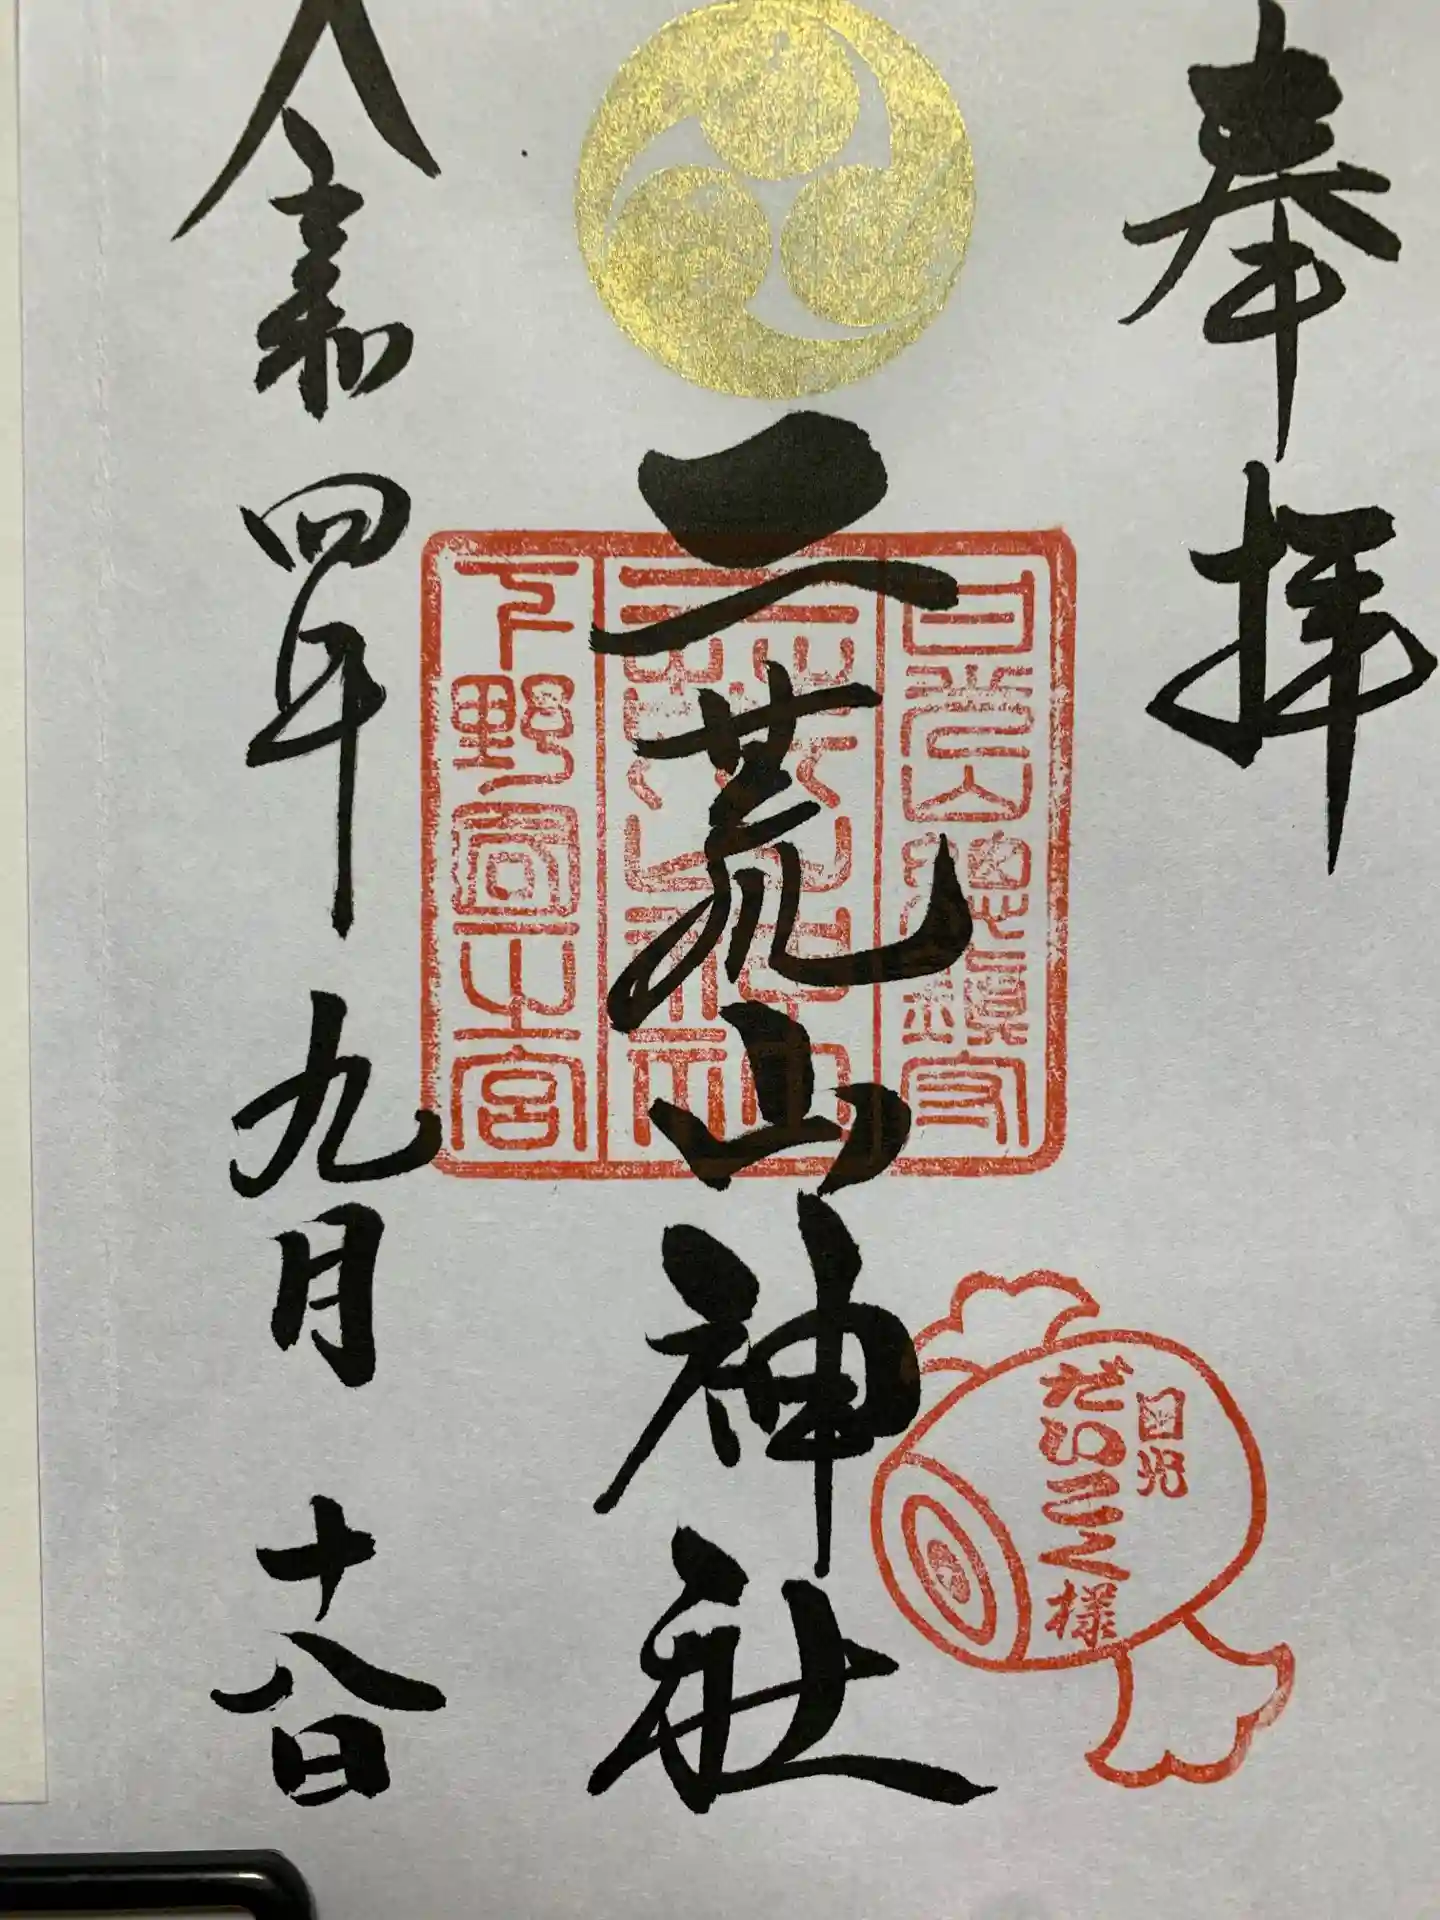 奉拝
日光山総鎮守
二荒山神社
二荒山神社
下野国一之宮
日光
だいこく様
令和四年九月十八日